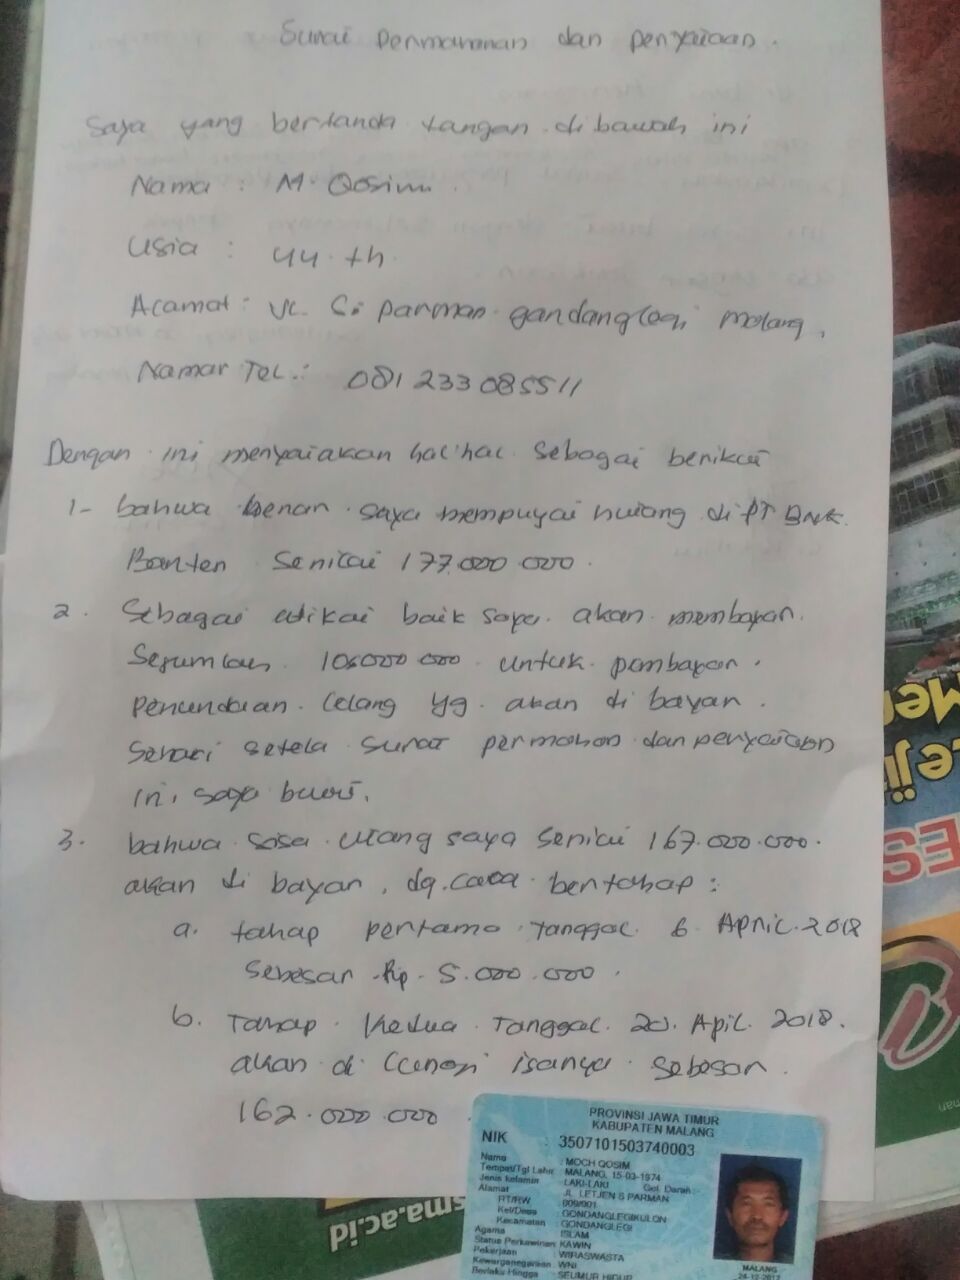 Surat Permohonan dan penyataan.
Saya yang bertanda tangan dibawah ini
Nama : M. Qosim.
Usia : 44 th.
Alamat : JL. S. Parman gandanglegi malang.
Nomar TeL.: 081233085511
Dengan ini menyatakan hal'hal sebagai berikut
1- bahwa benar saya mempuyai hutang di PT Bank
Banten Senilai 177.000.000.
2. Sebagai etikat baik saya akan membayar
Sejumlah 10.000.000 untuk pembayar.
Penundaan Lelang yg. akan di bayar.
Sehari setela Surat permohon dan penyataan
ini saya buat.
3. bahwa sisa utang saya senilai 167.000.000.
akan di bayar, dg. cara bertahap :
a. tahap pertama tanggal 6 April 2018
Sebesar Rp. 5.000.000.
b. Tahap Kedua Tanggal 20. Apil. 2018.
akan di isanya sebesar
162.000.000
PROVINSI JAWA TIMUR
KABUPATEN MALANG
NIK : 3507101503740003
Nama : MOCH QOSIM
Tempat/Tgl Lahir : MALANG, 15-03-1974
Jenis kelamin : LAKI-LAKI Gol. Darah :
Alamat : JL. LETJEN S PARMAN
RT/RW : 009/001
Kel/Desa : GONDANGLEGIKULON
Kecamatan : GONDANGLEGI
Agama : ISLAM
Status Perkawinan: KAWIN
Pekerjaan : WIRASWASTA
Kewarganegaraan: WNI
Berlaku Hingga : SEUMUR HIDUP
MALANG
24-12-2012
sma.ac.id